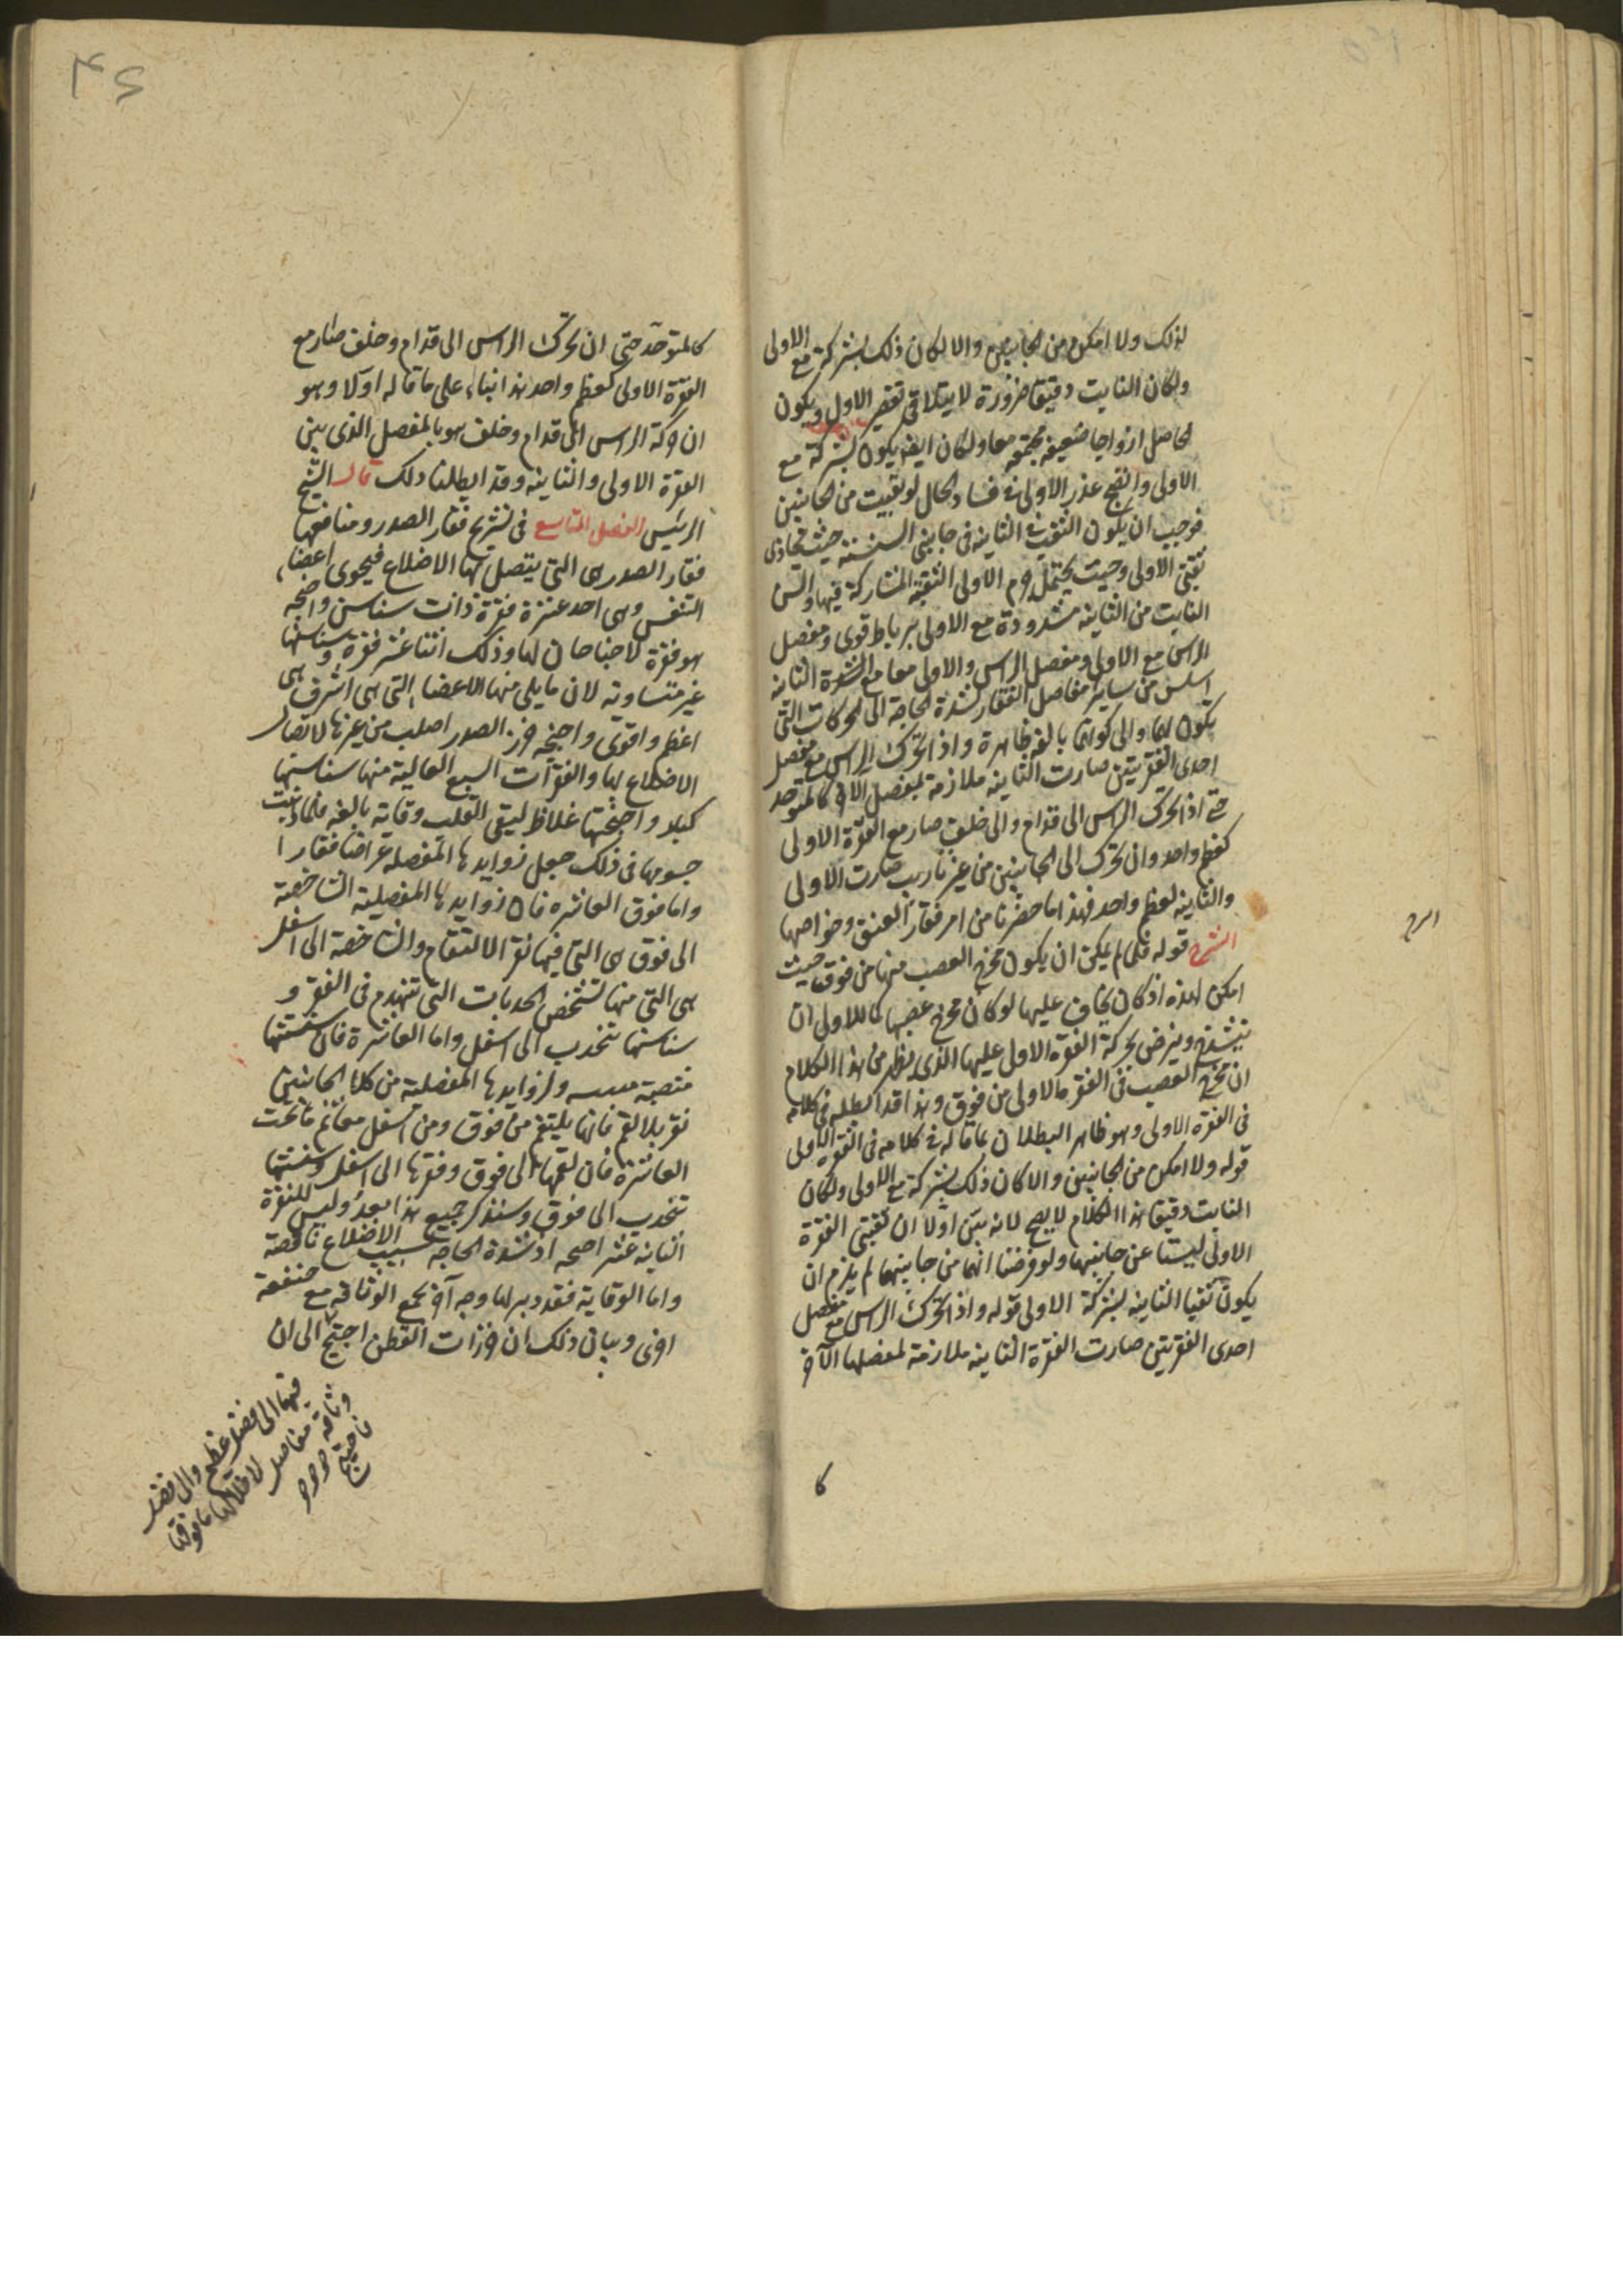 لذلك ولا امكن من الجانبين والا لكان ذلك بشركة مع الاولى
ولكان النابت دقيقا ضرورة لا يتلافى تقصير الاول ويكون
الحاصل ازواجا ضعيفه مجتمعه معا ولكان ايضه يكون بشركة مع
الاولى واتضح عذر الاولى فى فساد الحال لو ثقبت من الجانبين
فوجب ان يكون الثقب فى الثانيه فى جانبى السنسنة حيث تحاذى
ثقبتى الاولى وحيث يحتمل جرم الاولى الثقبة المشاركة فيها والسن
النابت من الثانيه مشدودة مع الاولى برباط قوى ومفصل
الراس مع الاولى ومفصل الراس والاولى معا مع الفقرة الثانيه
اسلس من ساير مفاصل الفقار لشدة الحاجة الى الحركات التى
يكون لهما والى كونهما بالغه ظاهرة واذا تحرك الراس مع مفصل
احدى الفقرتين صارت الثانيه ملازمة لمفصل الاخر كالمتوحد
حتى اذا تحرك الراس الى قدام والى خلف صار مع الفقرة الاولى
كعظم واحد وان تحرك الى الجانبين من غير تاريب صارت الاولى
والثانيه كعظم واحد فهذا ما حضرنا من امر فقار العنق وخواصها
الشرح قوله فلما لم يمكن ان يكون مخرج العصب منها من فوق حيث
امكن لهذه اذ كان يخاف عليها لو كان مخرج عصبها كما للاولى ان
ينشدخ ويترضض بحركة الفقرة الاولى عليها الذى يظهر من هذا الكلام
ان مخرج العصب فى الفقرة الاولى من فوق وهذا قد ابطله فى كلامه
فى الفقرة الاولى وهو ظاهر البطلان بما قاله فى كلامه فى الفقرة الاولى
قوله ولا امكن من الجانبين والا كان ذلك بشركة مع الاولى ولكان
النابت دقيقا هذا الكلام لا يصح لانه بين اولا ان ثقبتى الفقرة
الاولى ليستا عن جانبيها ولو فرضنا انهما من جانبيها لم يلزم ان
يكون ثقبا الثانيه بشركة الاولى قوله واذا تحرك الراس مع مفصل
احدى الفقرتين صارت الفقرة الثانيه ملازمة لمفصلها الآخر
كا
كالمتوحد حتى ان تحرك الراس الى قدام وخلف صار مع
الفقرة الاولى كعظم واحد هذا بناء على ما قاله اولا وهو
ان حركة الراس الى قدام وخلف هو بالمفصل الذى بين
الفقرة الاولى والثانيه وقد ابطلنا ذلك قال الشيخ
الرئيس الفصل التاسع فى تشريح فقار الصدر ومنافعها
فقار الصدر هى التى يتصل بها الاضلاع فيحوى اعضاء
التنفس وهى احد عشرة فقرة ذات سناسن واجنحه
هو فقرة لا جناحان لها وذلك اثنتا عشر فقرة وسناسنها
غير متساويه لان ما يلى منها الاعضاء التى هى اشرف هى
اعظم واقوى واجنحة خرز الصدر اصلب من غيرها لاتصال
الاضلاع بها والفقرات السبع العالية منها سناسنها
كبار واجنحتها غلاظ ليقى القلب وقاية بالغه فلما ذهبت
جسومها فى ذلك جعل زوايدها المفصله عراضا قصارا
واما فوق العاشره فان زوايدها المفصلية الشاخصة
الى فوق هى التى فيها نقر الالتقام والشاخصة الى اسفل
هى التى منها تشخص الحدبات التى تنهدم فى النقر و
سناسنها تتحدب الى اسفل واما العاشرة فان سنسنتها
منتصبة ولزوايدها المفصلية من كلا الجانبين
نقر بلا لقم فانها يلتقم من فوق ومن اسفل معا ثم ما تحت
العاشرة فان لقمها الى فوق ونقرها الى اسفل وسنسنتها
تتحدب الى فوق وسنذكر جميع هذا بعد وليس للفقرة
الثانية عشر اجنحه اذ شدة الحاجة بسبب الاضلاع ناقصة
واما الوقاية فقد دبر لها وجه آخر يجمع الوثاقة مع منفعة
اخرى وبيان ذلك ان خرزات القطن احتيج الى ان
فيها الى فضل عظم والى فضل
وثاقة مفاصل لاقلالها ما فوقها
فاحتيج